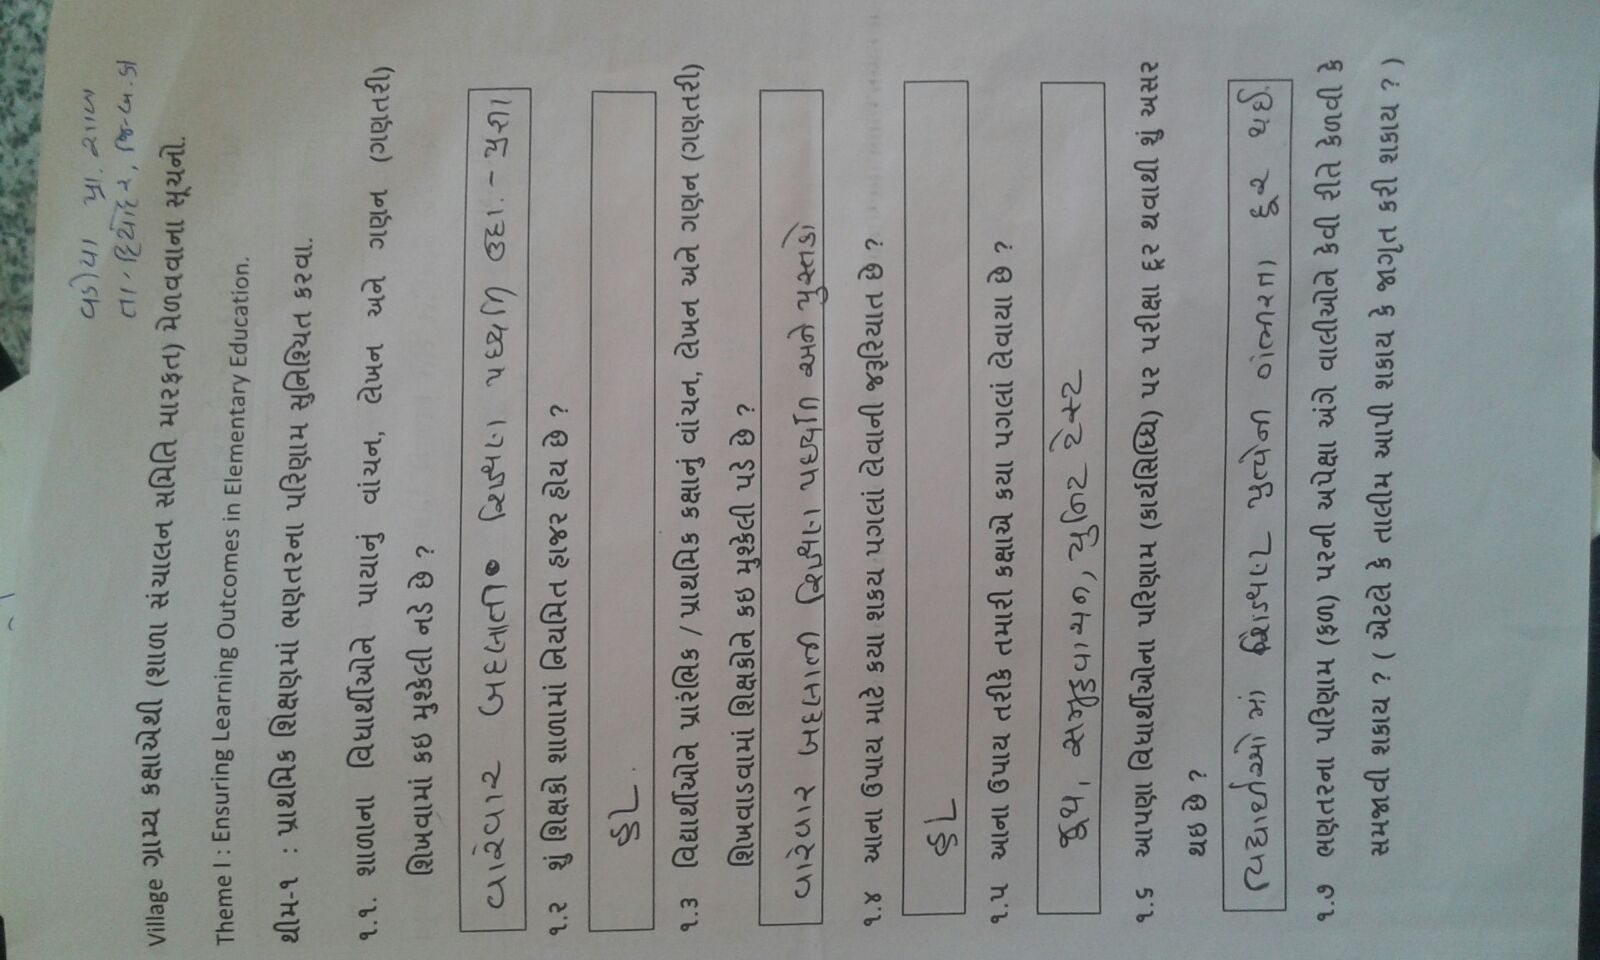 વડીયા પ્રા. શાળા
તા. દિયોદર, જિ-બ.કાં
Village ગ્રામ્ય કક્ષાએથી (શાળા સંચાલન સમિતિ મારફત) મેળવવાના સૂચનો.
Theme I : Ensuring Learning Outcomes in Elementary Education.
થીમ-૧ : પ્રાથમિક શિક્ષણમાં ભણતરના પરિણામ સુનિશ્ચિત કરવા.
૧.૧. શાળાના વિધાર્થીઓને પાયાનું વાંચન, લેખન અને ગણન (ગણતરી)
શિખવામાં કઇ મુશ્કેલી નડે છે ?
વારેવાર બદલાતી શિક્ષણ પધ્ધતિ ઉદા. - પ્રજ્ઞા
૧.૨ શું શિક્ષકો શાળામાં નિયમિત હાજર હોય છે ?
હા.
૧.૩ વિદ્યાર્થીઓને પ્રારંભિક / પ્રાથમિક કક્ષાનું વાંચન, લેખન અને ગણન (ગણતરી)
શિખવાડવામાં શિક્ષકોને કઇ મુશ્કેલી પડે છે ?
વારેવાર બદલાતી શિક્ષણ પધ્ધતિ અને પુસ્તકો
૧.૪ આના ઉપાય માટે કયા શક્ય પગલાં લેવાની જરૂરિયાત છે ?
હા
૧.૫ આના ઉપાય તરીકે તમારી કક્ષાએ કયા પગલાં લેવાયા છે ?
જૂથ, સમૂહવાચન, યુનિટ ટેસ્ટ
૧.૬ આપણા વિધાર્થીઓના પરિણામ (કાર્યસિધ્ધિ) પર પરીક્ષા દૂર થવાથી શું અસર
થઇ છે ?
વિદ્યાર્થીઓમાં શિક્ષણ પ્રત્યેની ગંભીરતા દૂર થઈ.
૧.૭ ભણતરના પરિણામ (ફળ) પરની અપેક્ષા અંગે વાલીઓને કેવી રીતે કેળવી કે
સમજાવી શકાય ? ( એટલે કે તાલીમ આપી શકાય કે જાગૃત કરી શકાય ? )